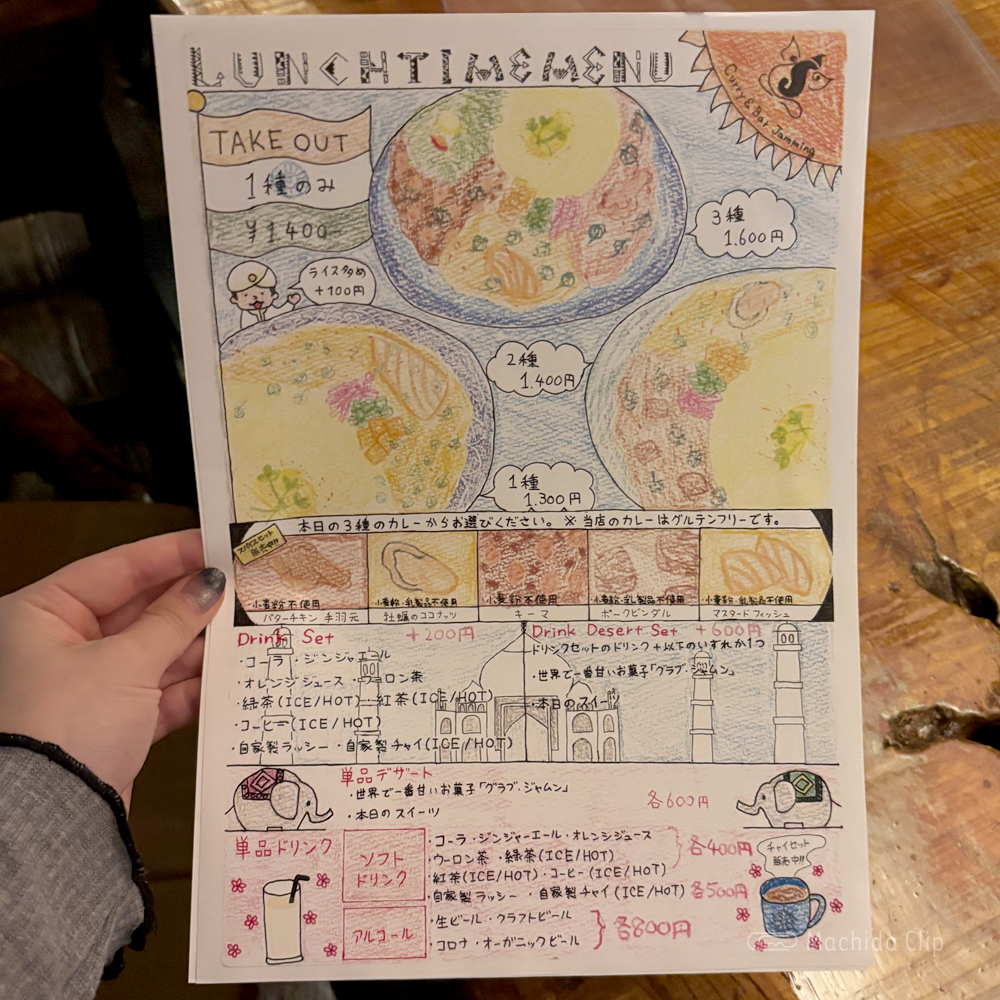 LUNCHTIMEMENU
Curry & Bar Jamming
TAKE OUT
1種のみ
¥1400-
ライス多め
+100円
3種
1.600円
2種
1.400円
1種
1.300円
本日の3種のカレーからお選びください。 ※ 当店のカレーはグルテンフリーです。
スパイスセット
販売中!!
・小麦粉不使用
・小麦粉・乳製品不使用
・小麦粉不使用
・小麦粉・乳製品不使用
・小麦粉・乳製品不使用
バターチキン 手羽元
牡蠣のココナッツ
キーマ
ポークビンダル
マスタードフィッシュ
Drink Set +200円
・コーラ・ジンジャエール
・オレンジジュース・ウーロン茶
・緑茶(ICE/HOT)・紅茶(ICE/HOT)
・コーヒー(ICE/HOT)
・自家製ラッシー・自家製チャイ(ICE/HOT)
Drink Desert Set +600円
ドリンクセットのドリンク+以下のいずれか1つ
・世界で一番甘いお菓子「グラブ・ジャムン」
・本日のスイーツ
単品デザート
・世界で一番甘いお菓子「グラブ・ジャムン」
・本日のスイーツ
各600円
単品ドリンク
ソフト
ドリンク
・コーラ・ジンジャーエール・オレンジジュース
・ウーロン茶・緑茶(ICE/HOT)
・紅茶(ICE/HOT)・コーヒー(ICE/HOT)
各400円
・自家製ラッシー・自家製チャイ(ICE/HOT) 各500円
アルコール
・生ビール・クラフトビール
・コロナ・オーガニックビール
各800円
チャイセット
販売中!!
Machida Clip